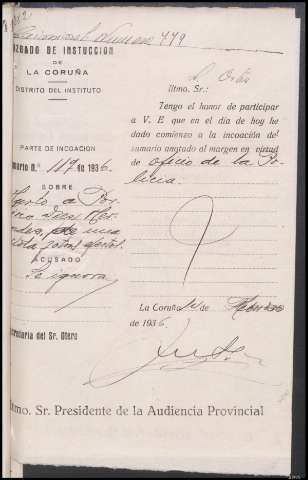 Número 779
JUZGADO DE INSTUCCION
DE
LA CORUÑA
DISTRITO DEL INSTITUTO
PARTE DE INCOACIÓN
Sumario N.º 117 de 1936
SOBRE
Hurto a
de una
y otros efectos.
ACUSADO
Se ignora
Secretaría del Sr. Otero
Iltmo. Sr.:
Tengo el honor de participar
a V. E que en el día de hoy he
dado comienzo a la incoación del
sumario anotado al margen en virtud
de oficio de la Po-
licia.
La Coruña de
de 1936.
Iltmo. Sr. Presidente de la Audiencia Provincial